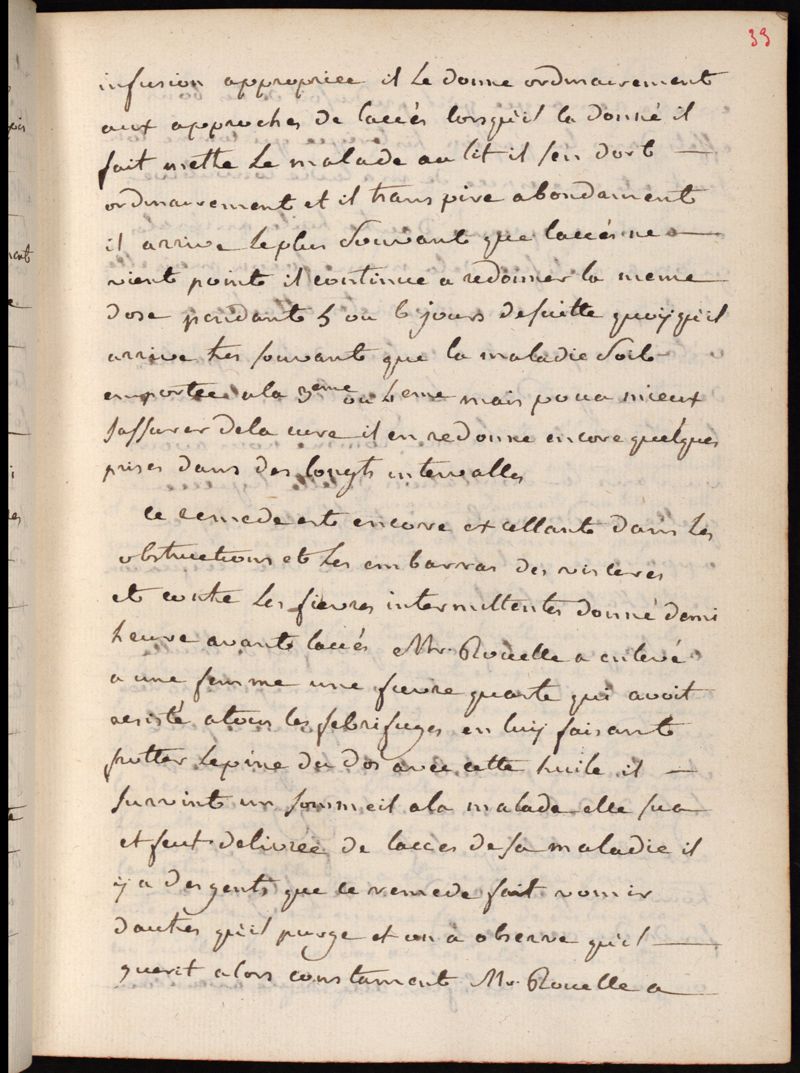 33
infusion appropriée il le donne ordinairement
aux approches de laccés lorsqu'il la donné il
fait mette le malade au lit il sen dort —
ordinairement et il transpire abondament
il arrive le plus souvant que laccés ne —
vient point il continue a redonner la meme
dose pendant 5 ou 6 jours desuitte quoÿqu'il
arrive tres souvant que la maladie soit
emportée ala 3eme ou 4eme mais pour mieux
sassurer dela cure il en redonne encore quelques
prises dans des longts intervalles
ce remede est encore excellant dans les
obstructions et les embarras des visceres
et contre les fievres intermittentes donné demi
heure avant laccés Mr. Rouelle a enlevé
a une femme une fievre quarte qui avoit
resisté atous les febrifuges en luÿ faisant
frotter lepine du dos avec cette huile il —
survint un sommeil ala malade elle sua
et feut delivrée de lacces de sa maladie il
ÿ a des gents que ce remede fait vomir
dautres qu'il purge et on a observe qu'il —
guerit alors constament Mr. Rouelle a